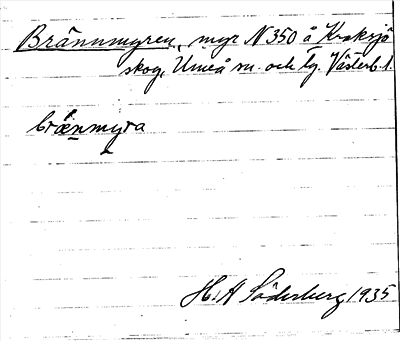 Brännmyren, myr N 350 å Kroksjö
skog, Umeå sn. och tg. Västerb. l.
brænmyra
H. A Söderberg 1935